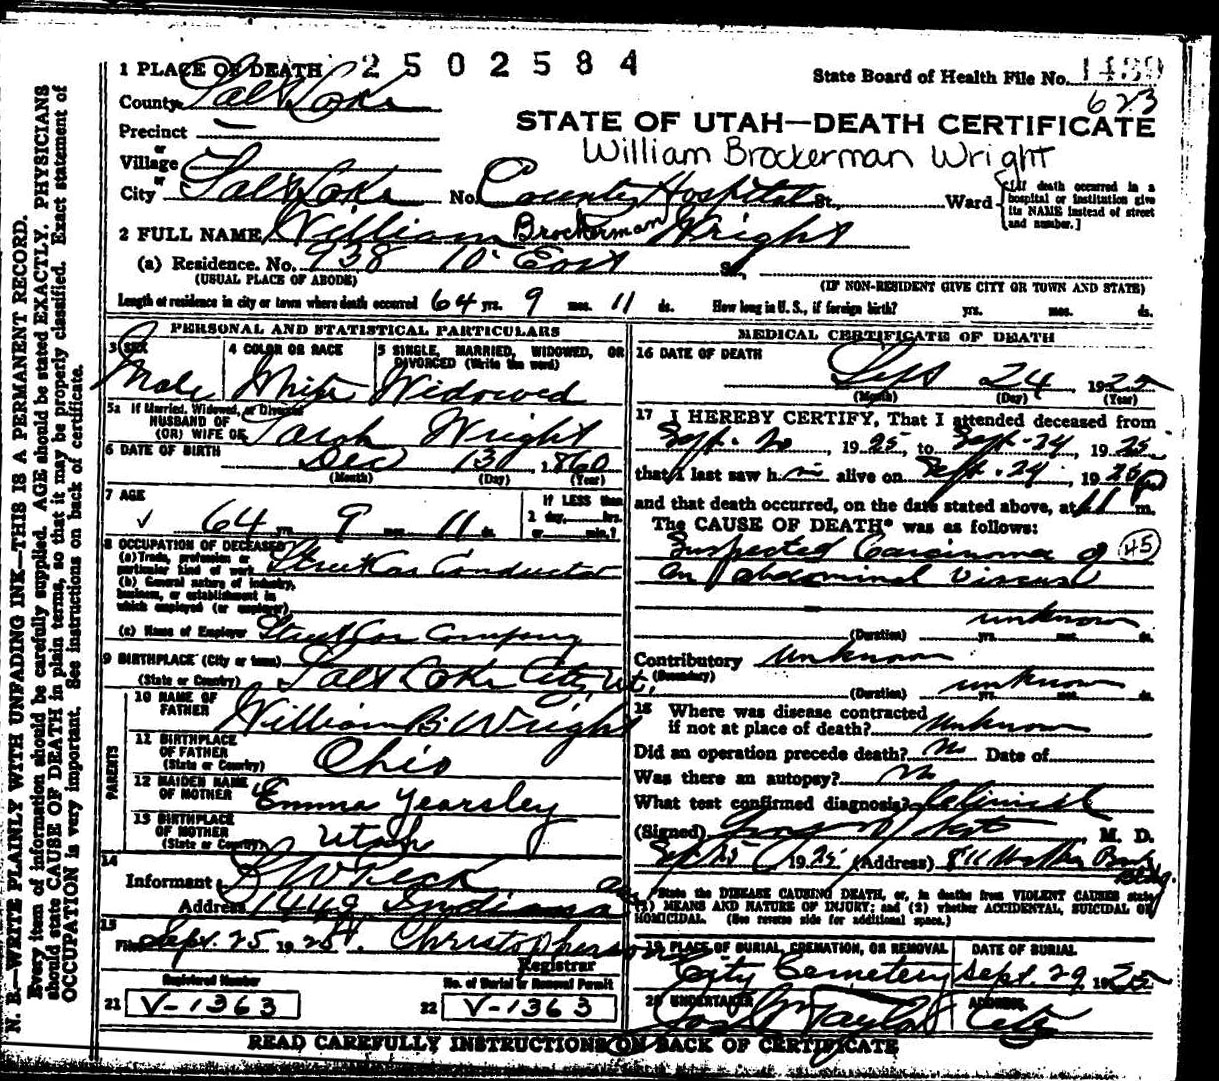 N. B.—WRITE PLAINLY WITH UNFADING INK—THIS IS A PERMANENT RECORD.
Every item of information should be carefully supplied. AGE should be stated EXACTLY. PHYSICIANS
should state CAUSE OF DEATH in plain terms, so that it may be properly classified. Exact statement of
OCCUPATION is very important. See instructions on back of certificate.
1 PLACE OF DEATH 2502584
State Board of Health File No. 1439
623
County Salt Lake
STATE OF UTAH—DEATH CERTIFICATE
Precinct —
or
William Brockerman Wright
Village
or
City Salt Lake No. County Hospital St., Ward
[If death occurred in a
hospital or institution give
its NAME instead of street
and number.]
2 FULL NAME William Brockerman Wright
(a) Residence. No. 938 10 East St.,
(USUAL PLACE OF ABODE) (IF NON-RESIDENT GIVE CITY OR TOWN AND STATE)
Length of residence in city or town where death occurred 64 yrs. 9 mos. 11 ds. How long in U. S., if foreign birth? yrs. mos. ds.
PERSONAL AND STATISTICAL PARTICULARS
3 SEX 4 COLOR OR RACE 5 SINGLE, MARRIED, WIDOWED, OR
DIVORCED (Write the word)
Male White Widowed
5a If Married, Widowed, or Divorced
HUSBAND OF
(OR) WIFE OF Sarah Wright
6 DATE OF BIRTH Dec 13 1860
(Month) (Day) (Year)
7 AGE If LESS than
64 yrs. 9 mos. 11 ds. 1 day, hrs.
or min.?
8 OCCUPATION OF DECEASED
(a) Trade, profession or
particular kind of work Street Car Conductor
(b) General nature of industry,
business, or establishment in
which employed (or employer)
(c) Name of Employer Street Car Company
9 BIRTHPLACE (City or town)
(State or Country) Salt Lake City, Ut.
PARENTS
10 NAME OF
FATHER William B. Wright
11 BIRTHPLACE
OF FATHER
(State or Country) Ohio
12 MAIDEN NAME
OF MOTHER Emma Yearsley
13 BIRTHPLACE
OF MOTHER
(State or Country) Utah
14
Informant Peck
Address 1449 Indiana
15
Filed Sept. 25 1925 Christopherson
Registrar
Registered Number No. of Burial or Removal Permit
21 V-1363 22 V-1363
MEDICAL CERTIFICATE OF DEATH
16 DATE OF DEATH
Sept 24 1925
(Month) (Day) (Year)
17 I HEREBY CERTIFY, That I attended deceased from
Sept. 1925 to Sept. 24 1925
that I last saw him alive on Sept. 24 1925
and that death occurred, on the date stated above, at 11 P m.
The CAUSE OF DEATH* was as follows:
Suspected Carcinoma of (45)
an abdominal viscus
unknown
(Duration) yrs. mos. ds.
Contributory unknown
(Secondary)
unknown
(Duration) yrs. mos. ds.
18 Where was disease contracted
if not at place of death? unknown
Did an operation precede death? No Date of
Was there an autopsy? No
What test confirmed diagnosis? Clinical
(Signed) M. D.
Sept 25 1925 (Address) Bldg.
*State the DISEASE CAUSING DEATH, or, in deaths from VIOLENT CAUSES state
(1) MEANS AND NATURE OF INJURY; and (2) whether ACCIDENTAL, SUICIDAL OR
HOMICIDAL. (See reverse side for additional space.)
19 PLACE OF BURIAL, CREMATION, OR REMOVAL DATE OF BURIAL
City Cemetery Sept. 29 1925
20 UNDERTAKER ADDRESS
Taylor City
READ CAREFULLY INSTRUCTIONS ON BACK OF CERTIFICATE